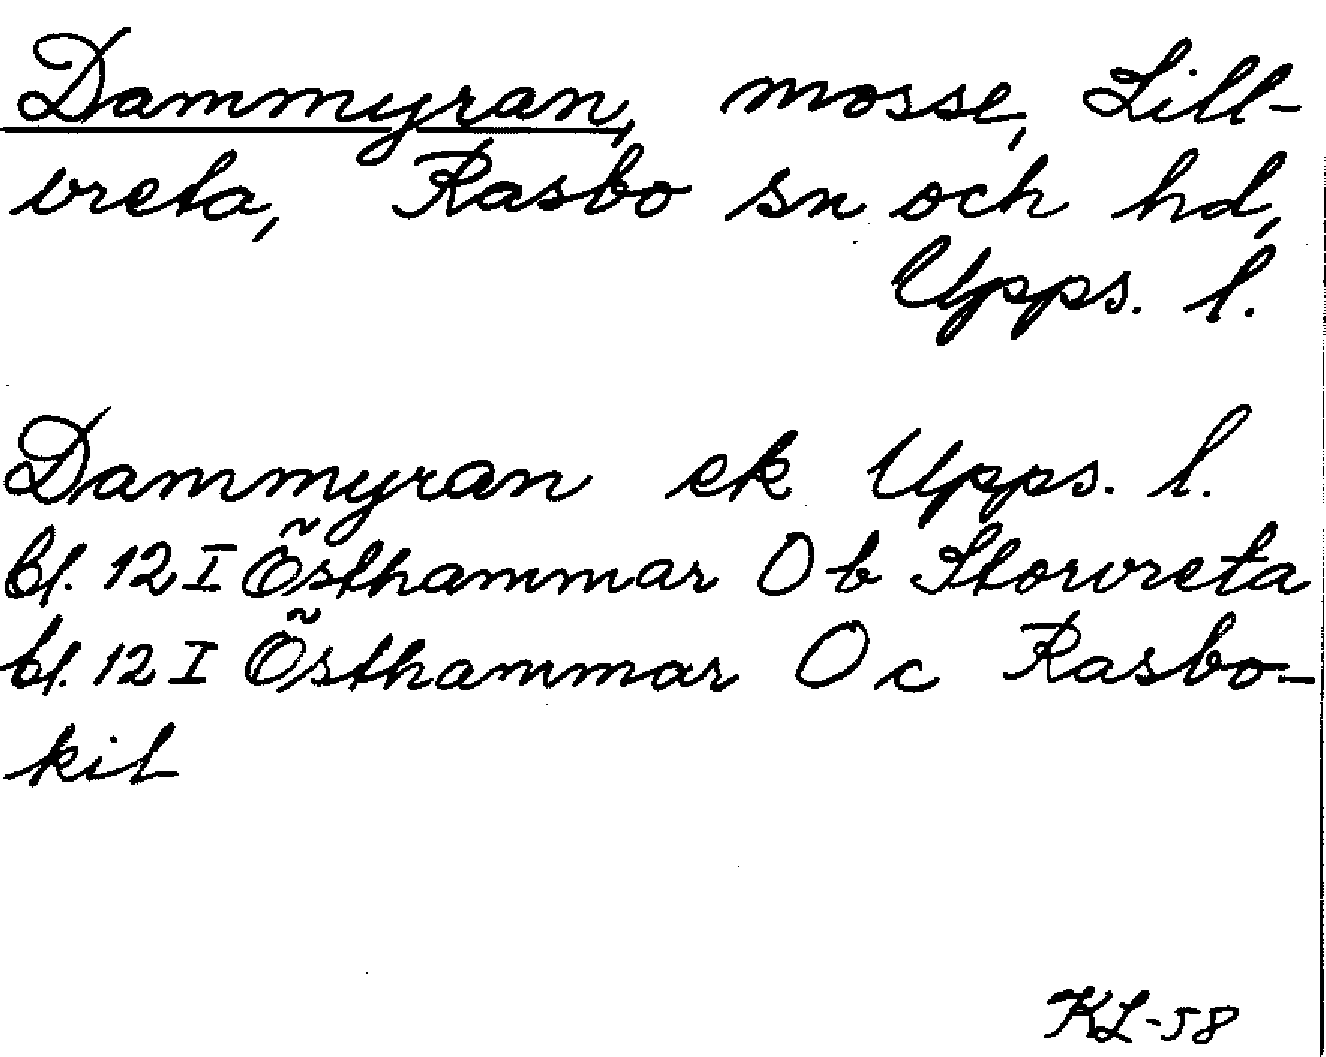 Dammyran, mosse, Lill-
vreta, Rasbo sn och hd,
Upps. l.
Dammyran ek Upps. l.
bl. 12 I Östhammar O b Storvreta
bl. 12 I Östhammar O c Rasbo-
kil
KL-58